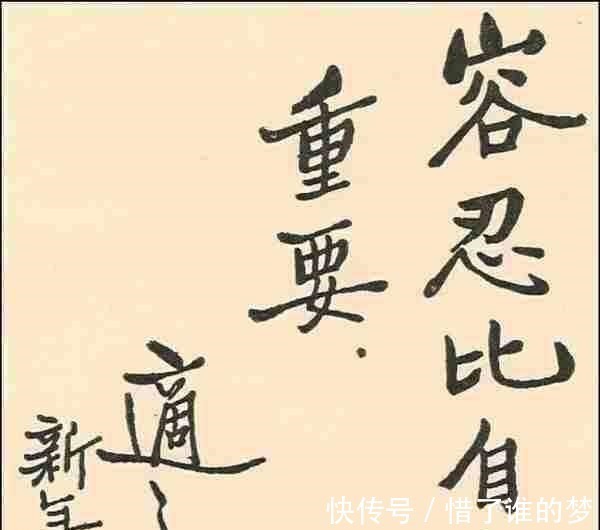 容忍比自
重要.
適之
新年
快传号 / 惜了谁的梦